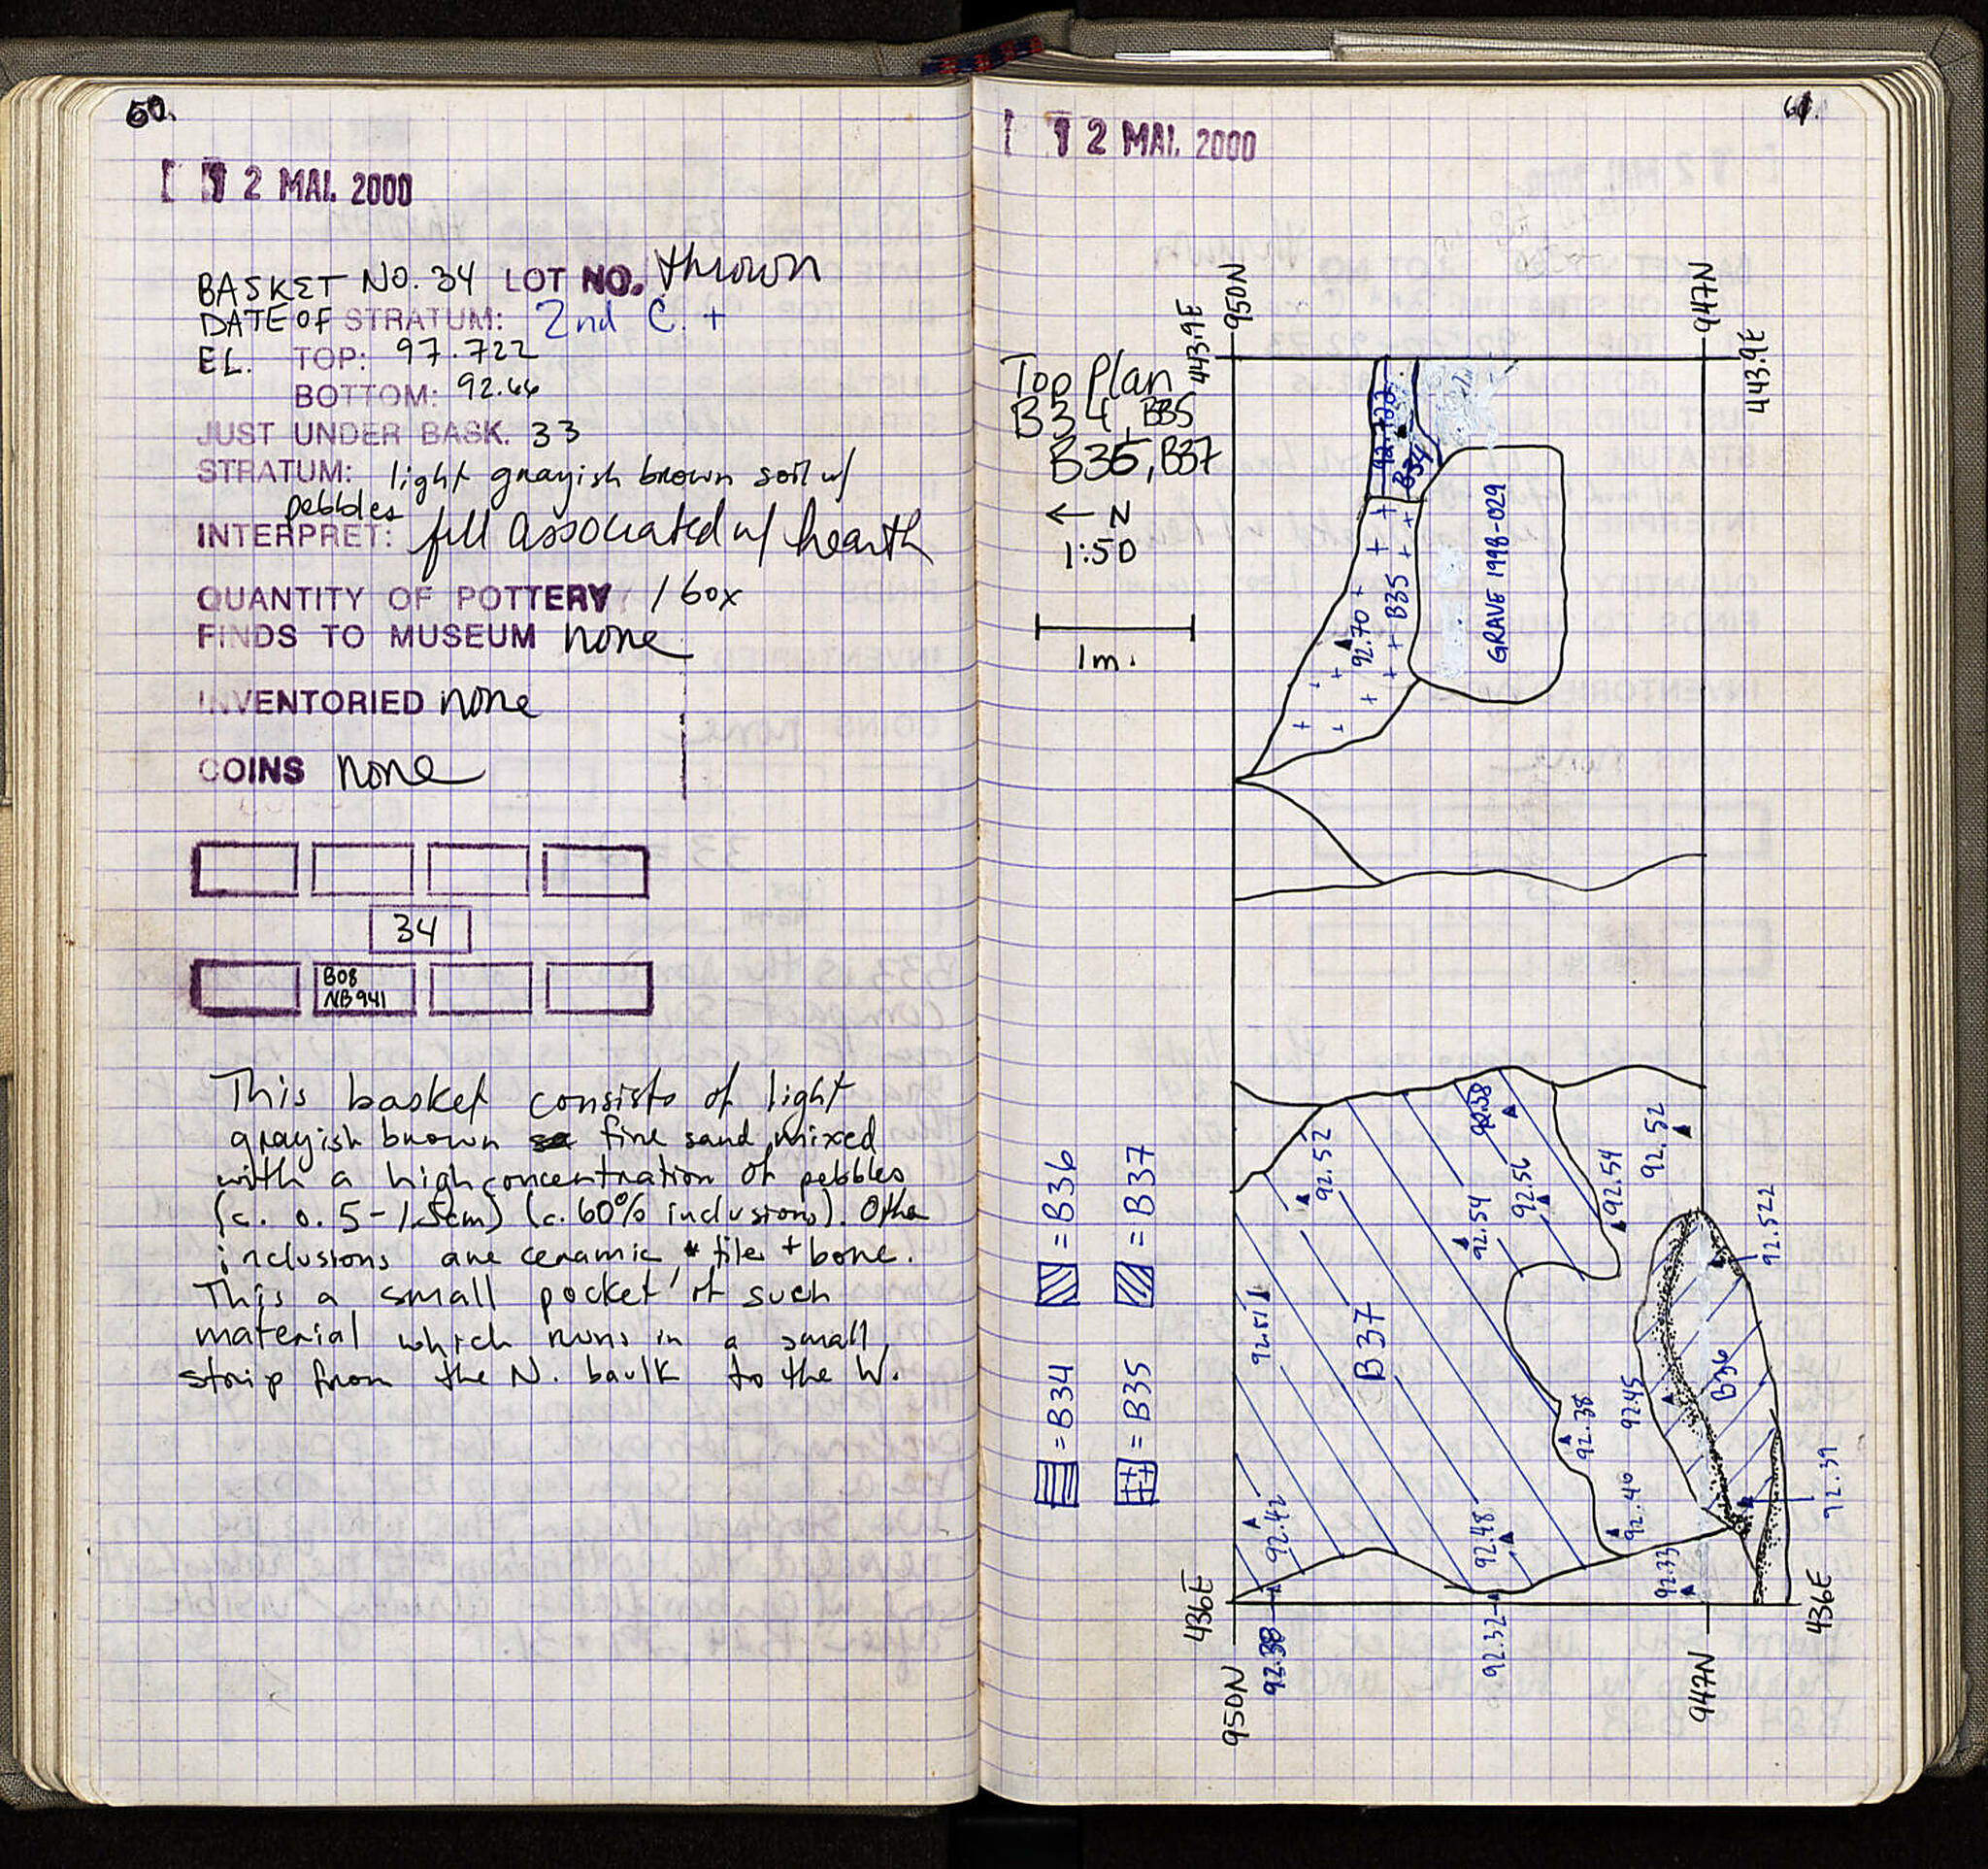 60.
12 MAI. 2000
BASKET NO. 34 LOT NO. thrown
DATE OF STRATUM: 2nd C. +
EL. TOP: 97.722
BOTTOM: 92.66
JUST UNDER BASK. 33
STRATUM: light grayish brown soil w/
pebbles
INTERPRET: fill associated w/ hearth
QUANTITY OF POTTERY 1 box
FINDS TO MUSEUM none
INVENTORIED none
COINS none
34
B08
NB941
This basket consists of light
grayish brown fine sand mixed
with a high concentration of pebbles
(c. 0.5-1.5cm) (c. 60% inclusions). Other
inclusions are ceramic, tile, + bone.
This a small pocket of such
material which runs in a small
strip from the N. baulk to the W.
61.
12 MAI. 2000
Top Plan
B34, B35
B36, B37
← N
1:50
1m.
443.9E
950N
947N
443.9E
92.722
B34
92.70
B35
GRAVE 1998-029
= B36
= B37
= B34
= B35
92.52
92.58
92.54
92.56
92.54
92.52
92.522
92.51
B37
92.38
92.45
B36
92.42
92.48
92.46
92.33
92.39
436E
950N
92.38
92.32
947N
436E